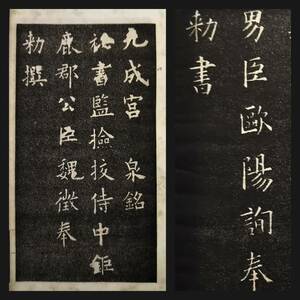 九成宮　泉銘
祕書監撿挍侍中鉅
鹿郡公臣魏徵奉
勅撰
男臣歐陽詢奉
勅書